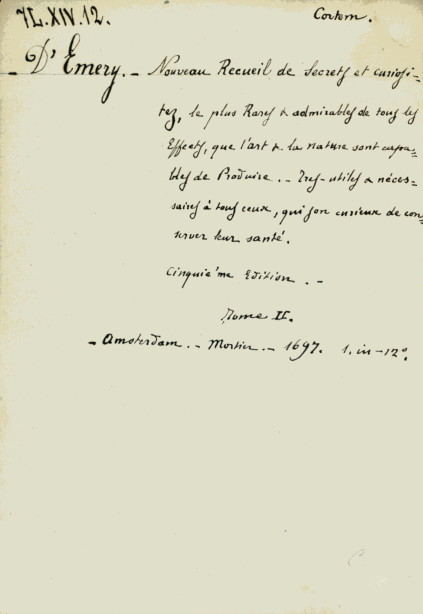 7L.XIV.12.
Cortom.
D'Emery. - Nouveau Recueil de Secrets et curiosi-
tez, le plus Rares & admirables de tous les
Effects, que l'art & la nature sont capa-
bles de Produire. - Tres-utiles & néces-
saires à tous ceux, qui son curieux de con-
server leur santé.
Cinquie'me Edition. -
Tome II.
- Amsterdam. - Mortier. - 1697. 1. in-12°.